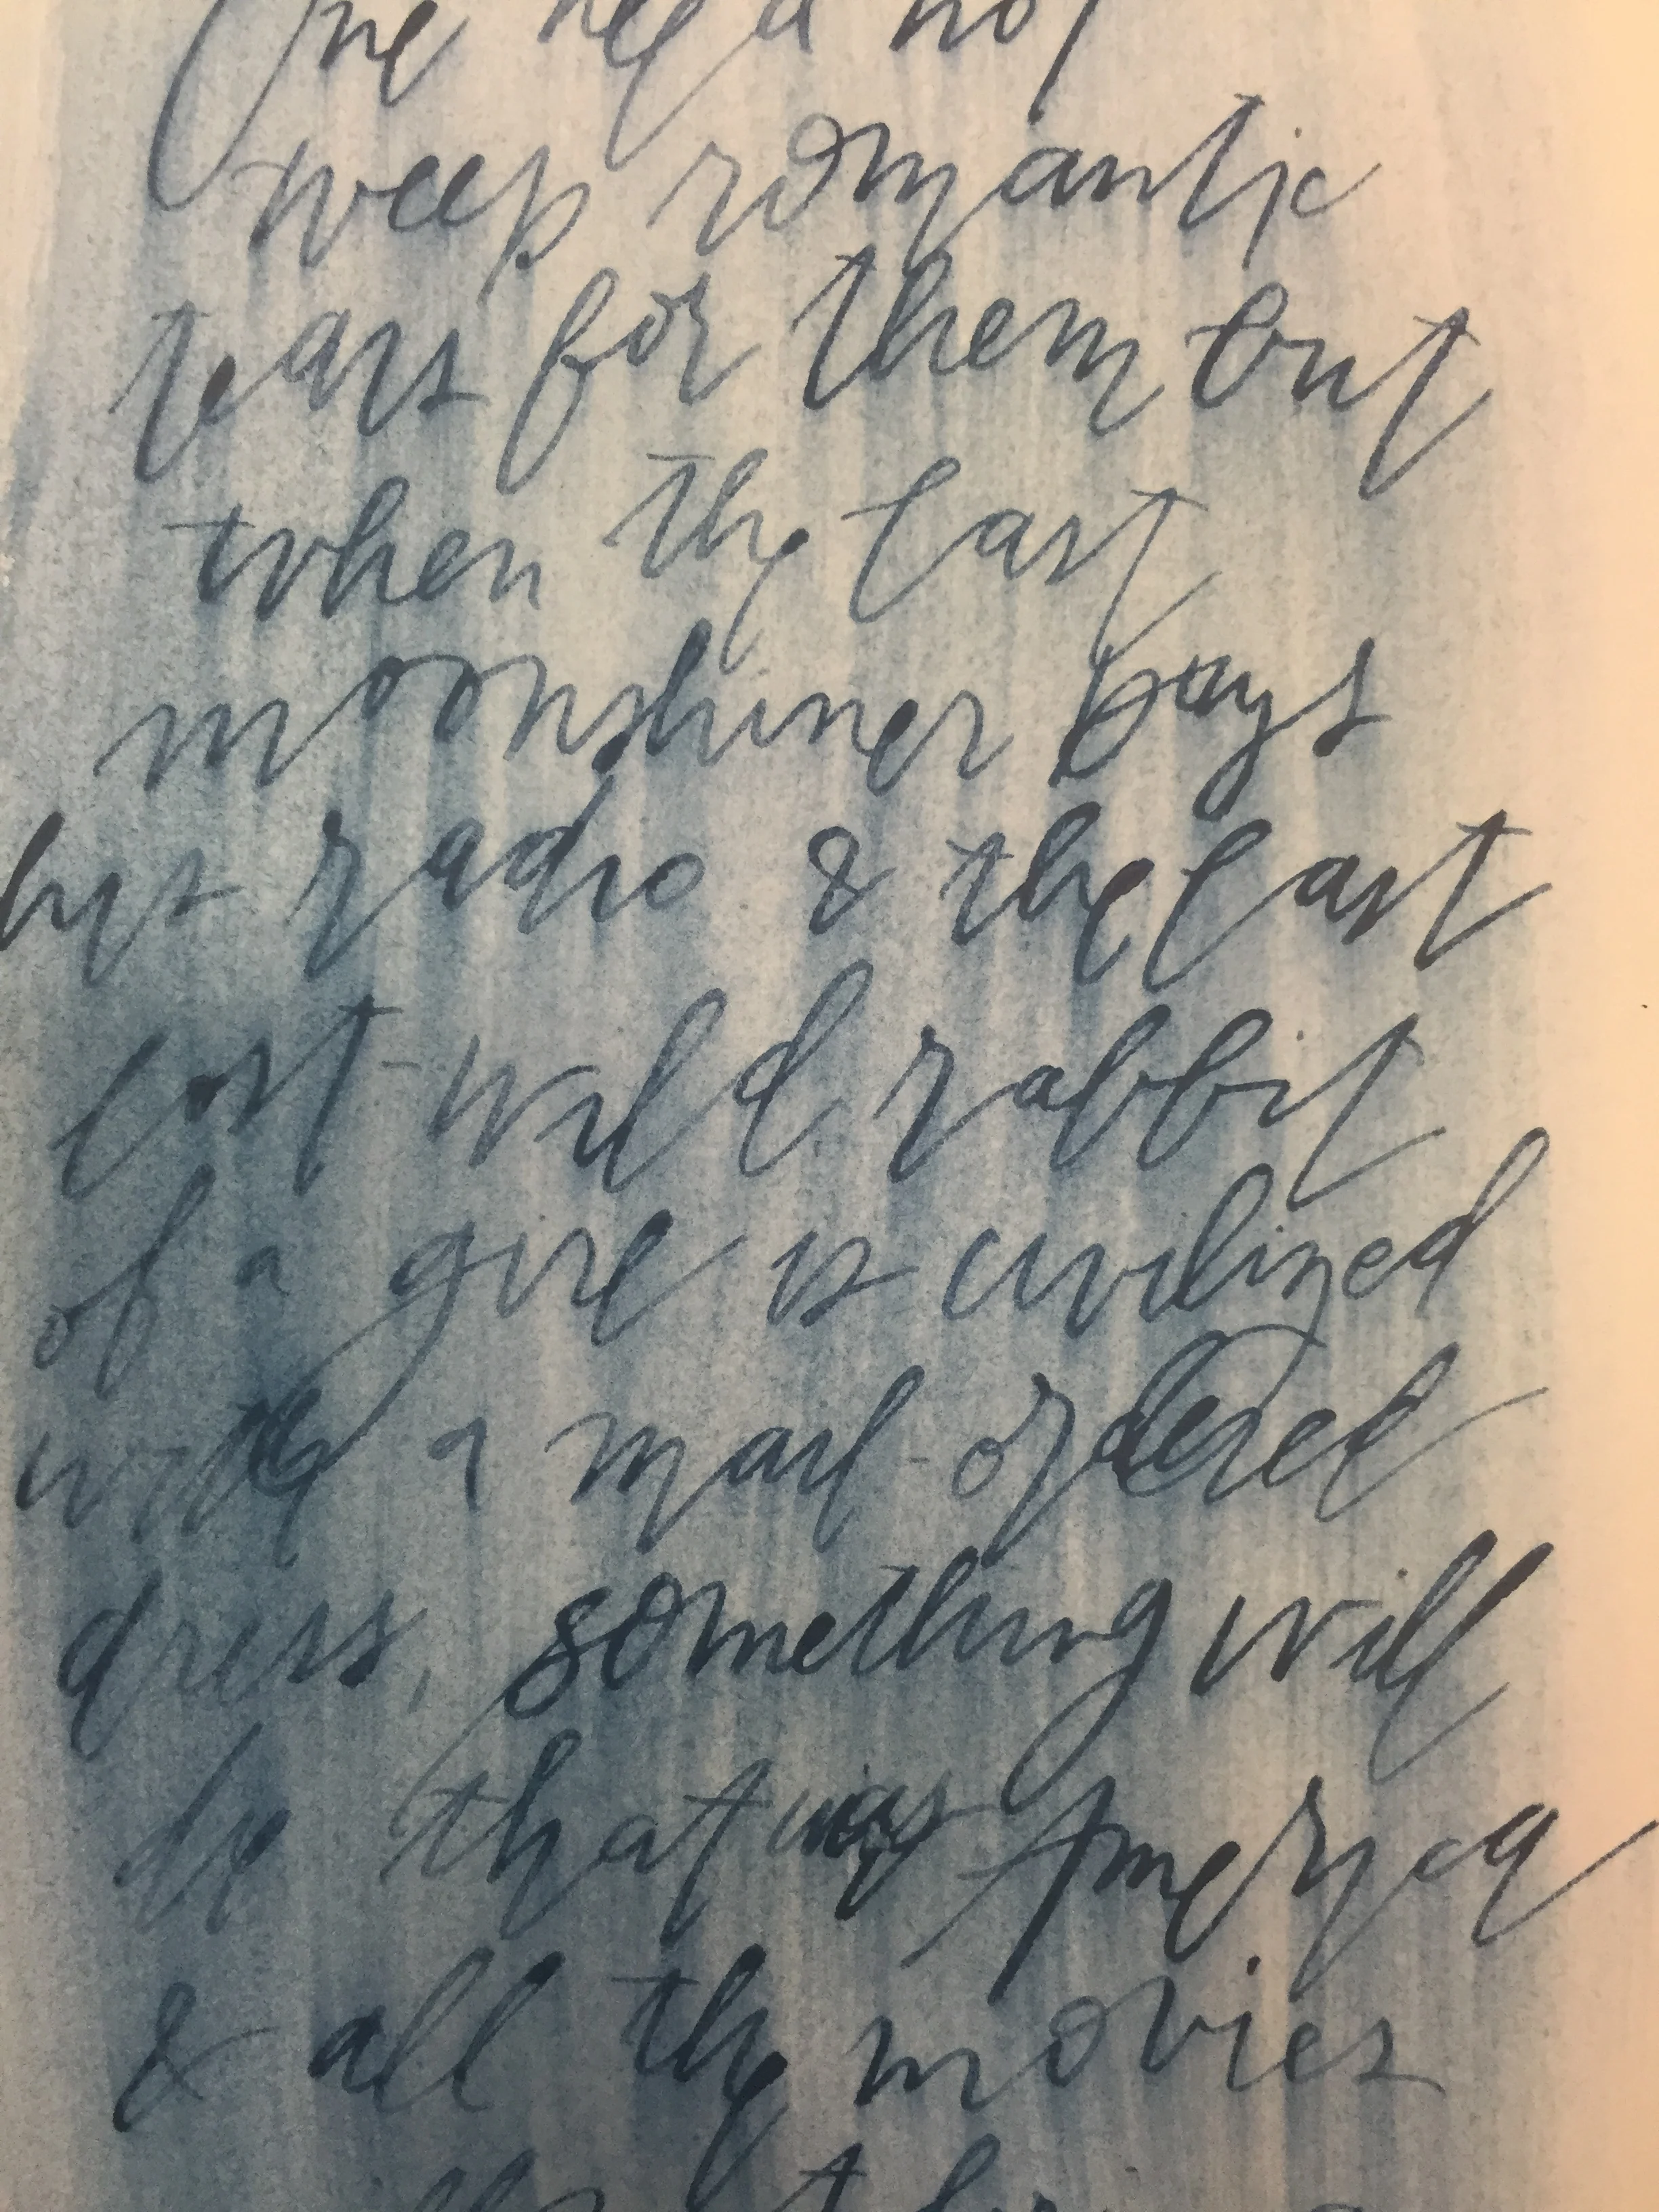 One need not
weep romantic
tears for them but
when the last
moonshiner buys
his radio & the last
lost wild rabbit
of a girl is civilized
with a mail-ordered
dress, something will
be that was America
& all the movies